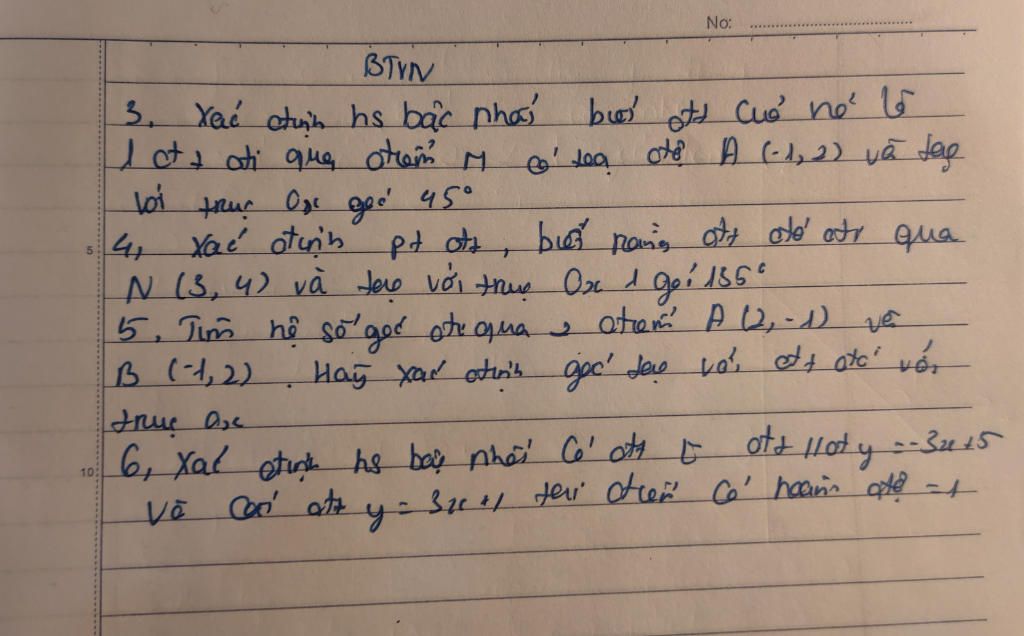 No:
BTVN
3. Xác định hs bậc nhất biết đt của nó là
1 đt đi qua điểm M có tọa độ A (-1, 2) và tạo
với trục Ox góc 45°
5
4, Xác định pt đt, biết rằng đt đó đi qua
N (3, 4) và tạo với trục Ox 1 góc 135°
5. Tìm hệ số góc đt qua 2 điểm A (2, -1) và
B (-1, 2). Hãy xác định góc tạo với đt đó với
trục Ox
10
6, Xác định hs bậc nhất có đt là đt // đt y = -3x + 5
Và cắt đt y = 3x + 1 tại điểm có hoành độ = 1